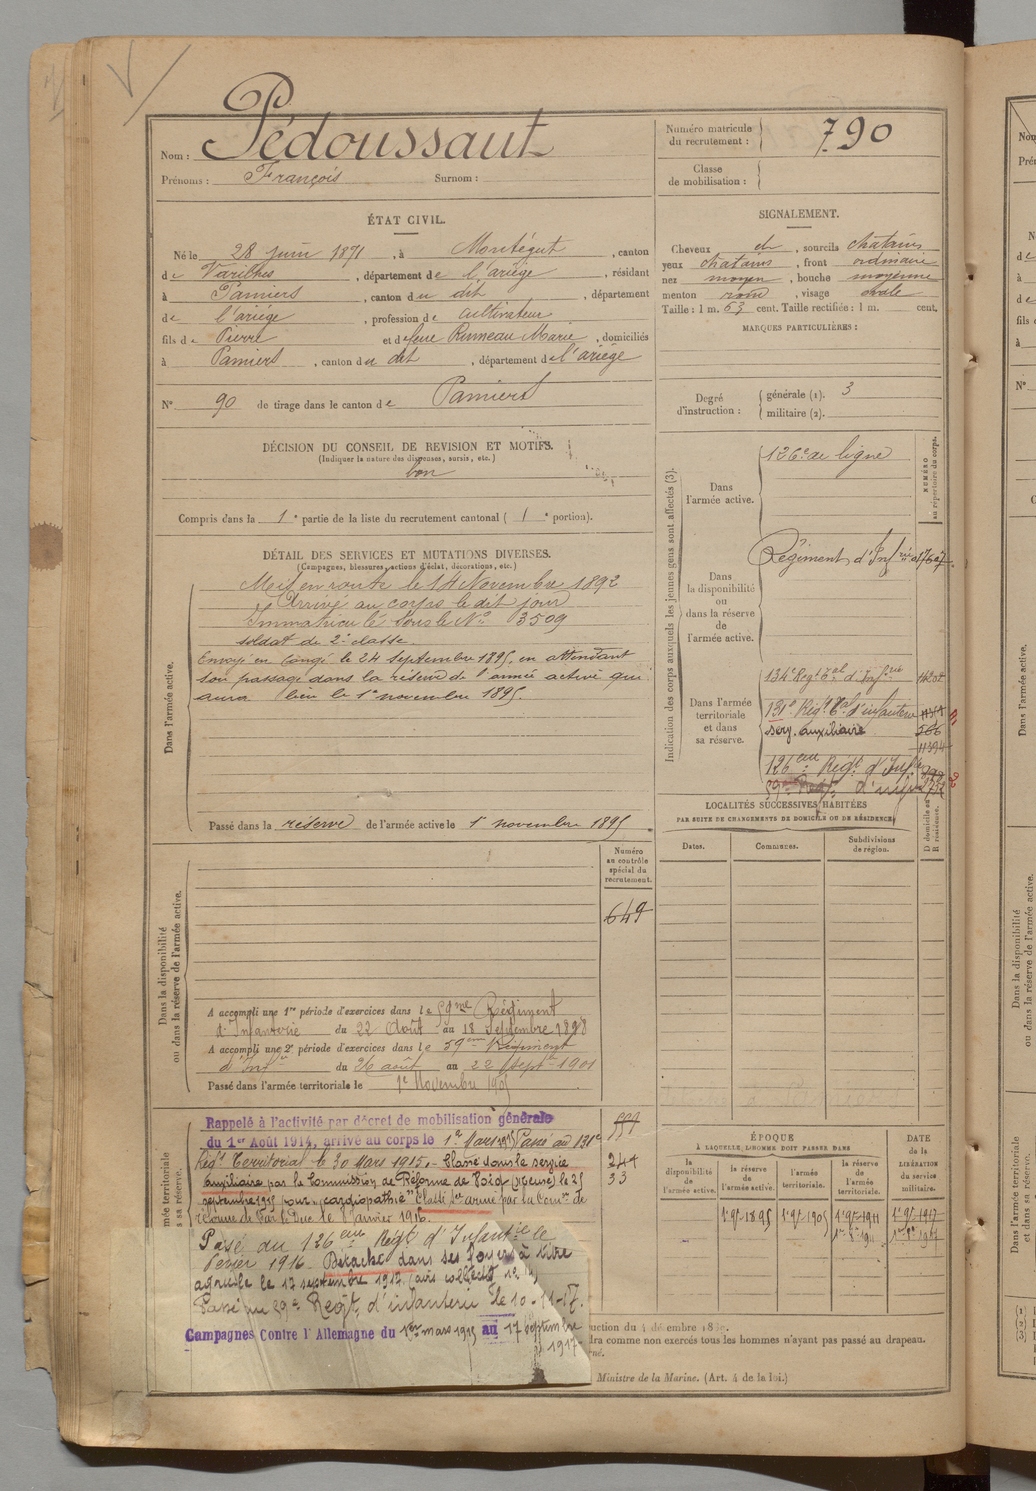 Nom : Pédoussaut
Prénoms : François Surnom :
Numéro matricule du recrutement : 790
Classe de mobilisation :
ÉTAT CIVIL.
Né le 28 juin 1871, à Montégut, canton
de Varilhes, département de l'ariège, résidant
à Pamiers, canton du dit, département
de l'ariège, profession de cultivateur
fils de Pierre et de feue Rumeau Marie, domiciliés
à Pamiers, canton du dit, département de l'ariège
N° 90 de tirage dans le canton de Pamiers
SIGNALEMENT.
Cheveux ch, sourcils chatains
yeux chatains, front ordinaire
nez moyen, bouche moyenne
menton rond, visage ovale
Taille : 1 m. 63 cent. Taille rectifiée : 1 m. cent.
MARQUES PARTICULIÈRES :
Degré d'instruction :
générale (1). 3
militaire (2).
DÉCISION DU CONSEIL DE REVISION ET MOTIFS.
(Indiquer la nature des dispenses, sursis, etc.)
bon
Compris dans la 1e partie de la liste du recrutement cantonal ( 1e portion).
DÉTAIL DES SERVICES ET MUTATIONS DIVERSES.
(Campagnes, blessures, actions d'éclat, décorations, etc.)
Dans l'armée active.
Mis en route le 14 Novembre 1892
Arrivé au corps le dit jour
Immatriculé sous le N° 3509
soldat de 2e classe
Envoyé en congé le 24 septembre 1895, en attendant
son passage dans la réserve de l'armée active qui
aura lieu le 1er novembre 1895.
Passé dans la réserve de l'armée active le 1er novembre 1895
Indication des corps auxquels les jeunes gens sont affectés (3).
NUMÉRO au répertoire du corps.
Dans l'armée active.
126e de ligne
Dans la disponibilité ou dans la réserve de l'armée active.
Régiment d'Infrie
Dans l'armée territoriale et dans sa réserve.
134e Régt tal d'Infrie
131e Régt tal d'infanterie
serv. auxiliaire 566
126eme Regt d'Infie
59e Regt d'infie
LOCALITÉS SUCCESSIVES HABITÉES
PAR SUITE DE CHANGEMENTS DE DOMICILE OU DE RÉSIDENCE.
Dates. Communes. Subdivisions de région. D domicile ou R résidence.
Dans la disponibilité ou dans la réserve de l'armée active.
Numéro au contrôle spécial du recrutement.
649
A accompli une 1re période d'exercices dans le 59me Régiment
d'Infanterie du 22 Août au 18 Septembre 1898
A accompli une 2e période d'exercices dans le 59eme Régiment
d'Inf du 26 août au 22 septre 1901
Passé dans l'armée territoriale le 1er Novembre 1905
Rappelé à l'activité par décret de mobilisation générale
du 1er Août 1914, arrivé au corps le 1er Mars 1915 Passé au 131e
Régt Territorial le 30 Mars 1915. Classé dans le service
auxiliaire par la Commission de Réforme de Void (Meuse) le 25
septembre 1915 pour "cardiopathie" Classé sce armé par la Comon de
réforme de Bar le Duc le 8 janvier 1916.
Passé au 126eme Regt d'Infantie le
fevrier 1916. Détaché dans ses foyers à titre
agricole le 17 septembre 1917.
Passé au 59e Regt d'infanterie le 10-11-17.
Campagnes Contre l'Allemagne du 1er mars 1915 au 17 Septembre
1917
244
33
ÉPOQUE
À LAQUELLE L'HOMME DOIT PASSER DANS
DATE DE LA LIBÉRATION du service militaire.
la disponibilité de l'armée active. la réserve de l'armée active. l'armée territoriale. la réserve de l'armée territoriale.
1er 9bre 1895 1er 9bre 1905 1er 9bre 1911 1er 9bre 1917
uction du 4 décembre 18
dra comme non exercés tous les hommes n'ayant pas passé au drapeau.
Ministre de la Marine. (Art. 4 de la loi.)